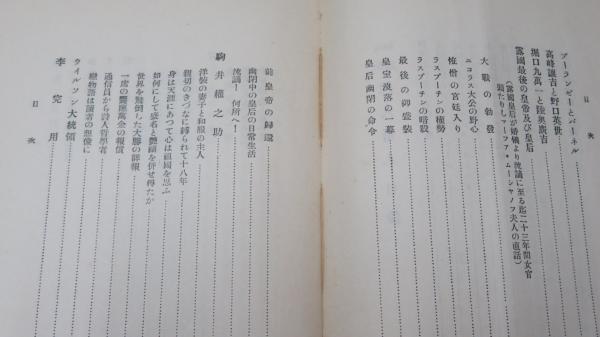 目次
ブーランゼーとパーネル
高峰讓吉と野口英世
堀口九萬一と陸奥廣吉
露國最後の皇帝及び皇后
(露國皇后が婚儀より流謫に至る迄二十三年間女官
頭たりしマーファ・ムーシャノフ夫人の直話)
大戰の勃發
ニコラス大公の野心
怪僧の宮廷入り
ラスプーチンの權勢
ラスプーチンの暗殺
最後の御盛裝
皇室沒落の一幕
皇后幽閉の命令
前皇帝の歸還
幽閉中の皇后の日常生活
流謫!何所へ!
駒井權之助
洋裝の妻子と和服の主人
親切のきづなに縛られて十八年
身は天涯にあつて心は祖國を思ふ
如何にして盛名と艷福を併せ得たか
世界を驚倒した大勝の詳報
一席の饗應萬金の報償
通信員から詩人哲學者
戀物語は讀者の想像に
ウイルソン大統領
李完用
目次